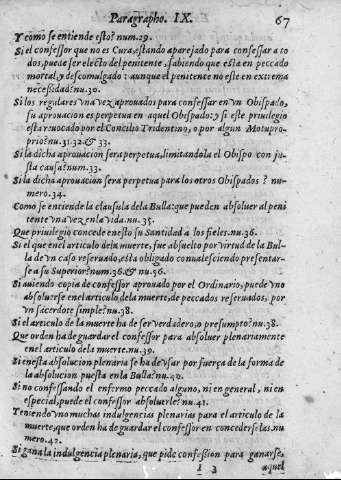 Paragrapho. IX. 67
Y como se entiende esto? num.29.
Si el confessor que no es Cura, estando aparejado para confessar a to
dos, puede ser electo del penitente, sabiendo que está en peccado
mortal, y descomulgado: aunque el penitente no esté en extrema
necesidad? nu.30.
Si los regulares vna vez aprouados para confessar en vn Obispado,
su aprouacion es perpetua en aquel Obispado: y si este priuilegio
esta reuocado por el Concilio Tridentino, o por algun Motupro-
prio? nu.31.32.& 33.
Si la dicha aprouacion sera perpetua, limitandola el Obispo con ju-
sta causa? num.33.
Si la dicha aprouacion sera perpetua para los otros Obispados? nu-
mero.34.
Como se entiende la clausula dela Bulla: que pueden absoluer al peni
tente vna vez en la vida. nu.35.
Que priuilegio concede en esto su Santidad a los fieles. nu.36.
Si el que en el articulo dela muerte, fue absuelto por virtud de la Bul-
la de vn caso reseruado, esta obligado conualesciendo presentar-
se a su Superior? num.36.& nu.56.
Si auiendo copia de confessor aprouado por el Ordinario, puede vno
absoluerse en el articulo de la muerte, de peccados reseruados, por
vn sacerdote simple? nu.38.
Si el articulo de la muerte ha de ser verdadero, o presumpto? nu.38.
Que orden ha de guardar el confessor para absoluer plenariamente
en el articulo dela muerte. nu.39.
Si en esta absolucion plenaria se ha de vsar por fuerça de la forma de
la absolucion puesta en la Bulla? nu.40.
Si no confessando el enfermo peccado alguno, ni en general, ni en
especial, puede el confessor absoluerle? nu.41.
Teniendo vno muchas indulgencias plenarias para el articulo de la
muerte, que orden ha de guardar el confessor en concederselas. nu
mero.42.
Si gana la indulgencia plenaria, que pide confession para ganarse,
I 3 aquel